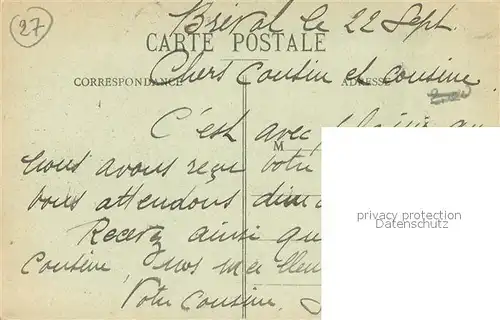 27
Bréval le 22 Sept.
CARTE POSTALE
Chers Cousin et cousine
CORRESPONDANCE ADRESSE
C'est avec plaisir qu
M
nous avons reçu votre
vous attendons dim
privacy protection
Datenschutz
Recevez ainsi qu
cousine, nos meilleu
Votre Cousine.